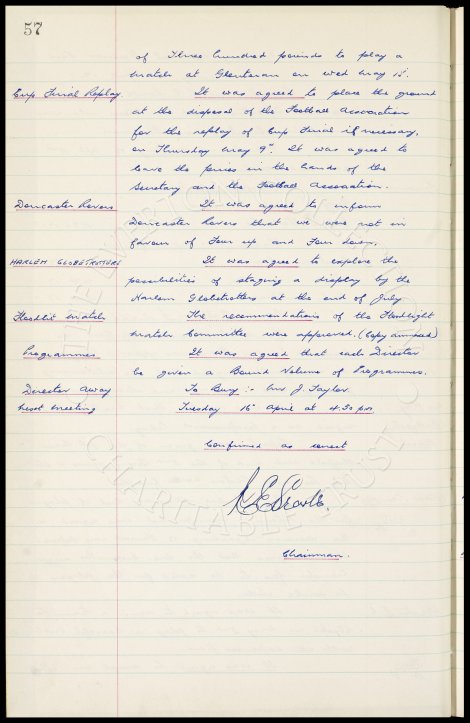 57
of Three hundred pounds to play a
match at Glentoran on Wed May 15th.
Cup Final Replay It was agreed to place the ground
at the disposal of the Football Association
for the replay of Cup Final if necessary,
on Thursday May 9th. It was agreed to
leave the prices in the hands of the
Secretary and the Football Association.
Doncaster Rovers It was agreed to inform
Doncaster Rovers that we were not in
favour of Four up and Four down.
HARLEM GLOBETROTTERS It was agreed to explore the
possibilities of staging a display by the
Harlem Globetrotters at the end of July
Floodlit Match The recommendations of the Floodlight
Match Committee were approved. (Copy annexed)
Programmes It was agreed that each Director
be given a Bound Volume of Programmes.
Director Away To Bury :- Mr J. Taylor
Next Meeting Tuesday 16 April at 4.30 pm
Confirmed as correct
Chairman.
CHARITABLE TRUST